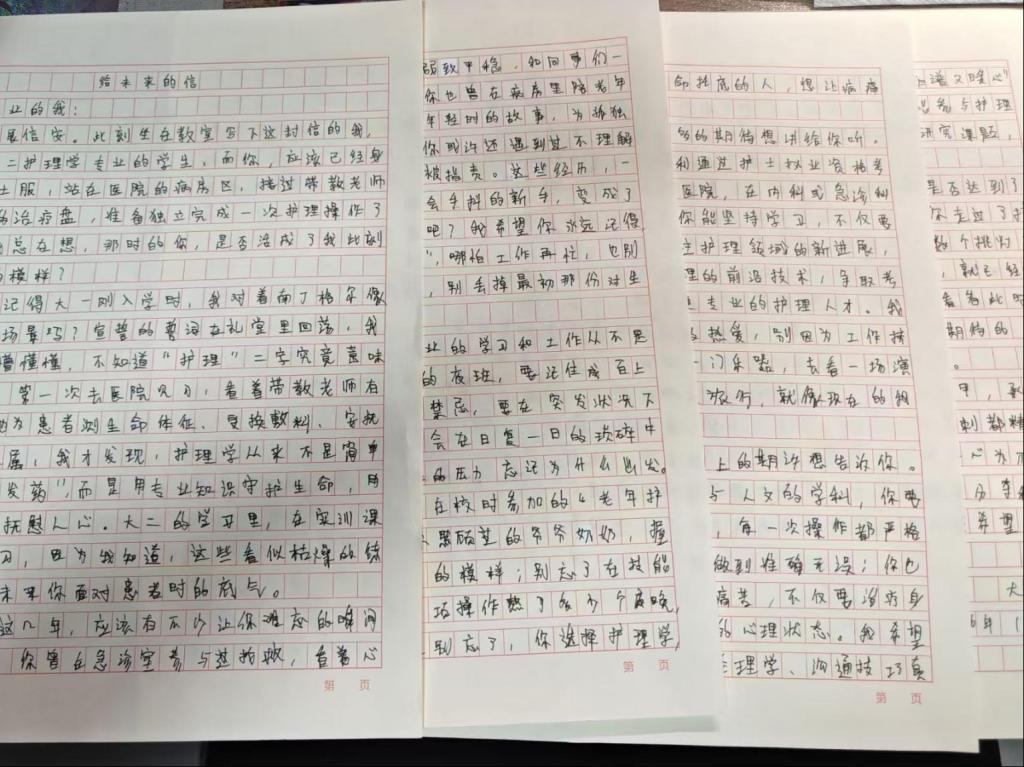 给未来的信
业的我：
展信安。此刻坐在教室写下这封信的我，
二护理学专业的学生，而你，应该已经身
士服，站在医院的病房区，接过带教老师
的治疗盘，准备独立完成一次护理操作了
总在想，那时的你，是否活成了我此刻
模样？
记得大一刚入学时，我对着南丁格尔像
场景吗？宣誓的誓词在礼堂里回荡，我
懵懂懂，不知道“护理”二字究竟意味
第一次去医院见习，看着带教老师有
为患者测生命体征、更换敷料、安抚
属，我才发现，护理学从来不是简单
发药”，而是用专业知识守护生命，用
抚慰人心。大二的学习里，在实训课
习，因为我知道，这些看似枯燥的练
未来你面对患者时的底气。
这几年，应该有不少让你难忘的瞬间
你曾在急诊室参与过抢救，看着心
第 页
弱致平稳，和同事们一
你也曾在病房里陪老年
年轻时的故事，为孤独
你或许还遇到过不理解
被指责。这些经历，一
会手抖的新手，变成了
吧？我希望你永远记得
”，哪怕工作再忙，也别
，别丢掉最初那份对生
业的学习和工作从不是
的夜班，要记住成百上
禁忌，要在突发状况下
会在日复一日的琐碎中
的压力忘记为什么出发。
在校时参加的“老年护
的爷爷奶奶，握
的模样；别忘了在技能
巧操作熬了多少个夜晚，
别忘了，你选择护理学，
第 页
命托底的人，想让病痛
的期待想讲给你听。
利通过护士执业资格考
医院，在内科或急诊科
你能坚持学习，不仅要
注护理领域的新进展，
理的前沿技术，争取考
专业的护理人才。我
热爱，别因为工作挤
一门乐器，去看一场演
就像现在的我
上的期许想告诉你。
与人文的学科，你要
，每一次操作都严格
做到准确无误；你也
痛苦，不仅要治疗身
心理状态。我希望
理学、沟通技巧真
第 页
与护理
研究课题，
是否达到了
你走过了
数个挑灯
，就已经
看着此时
期待的
都
希望
大
年1